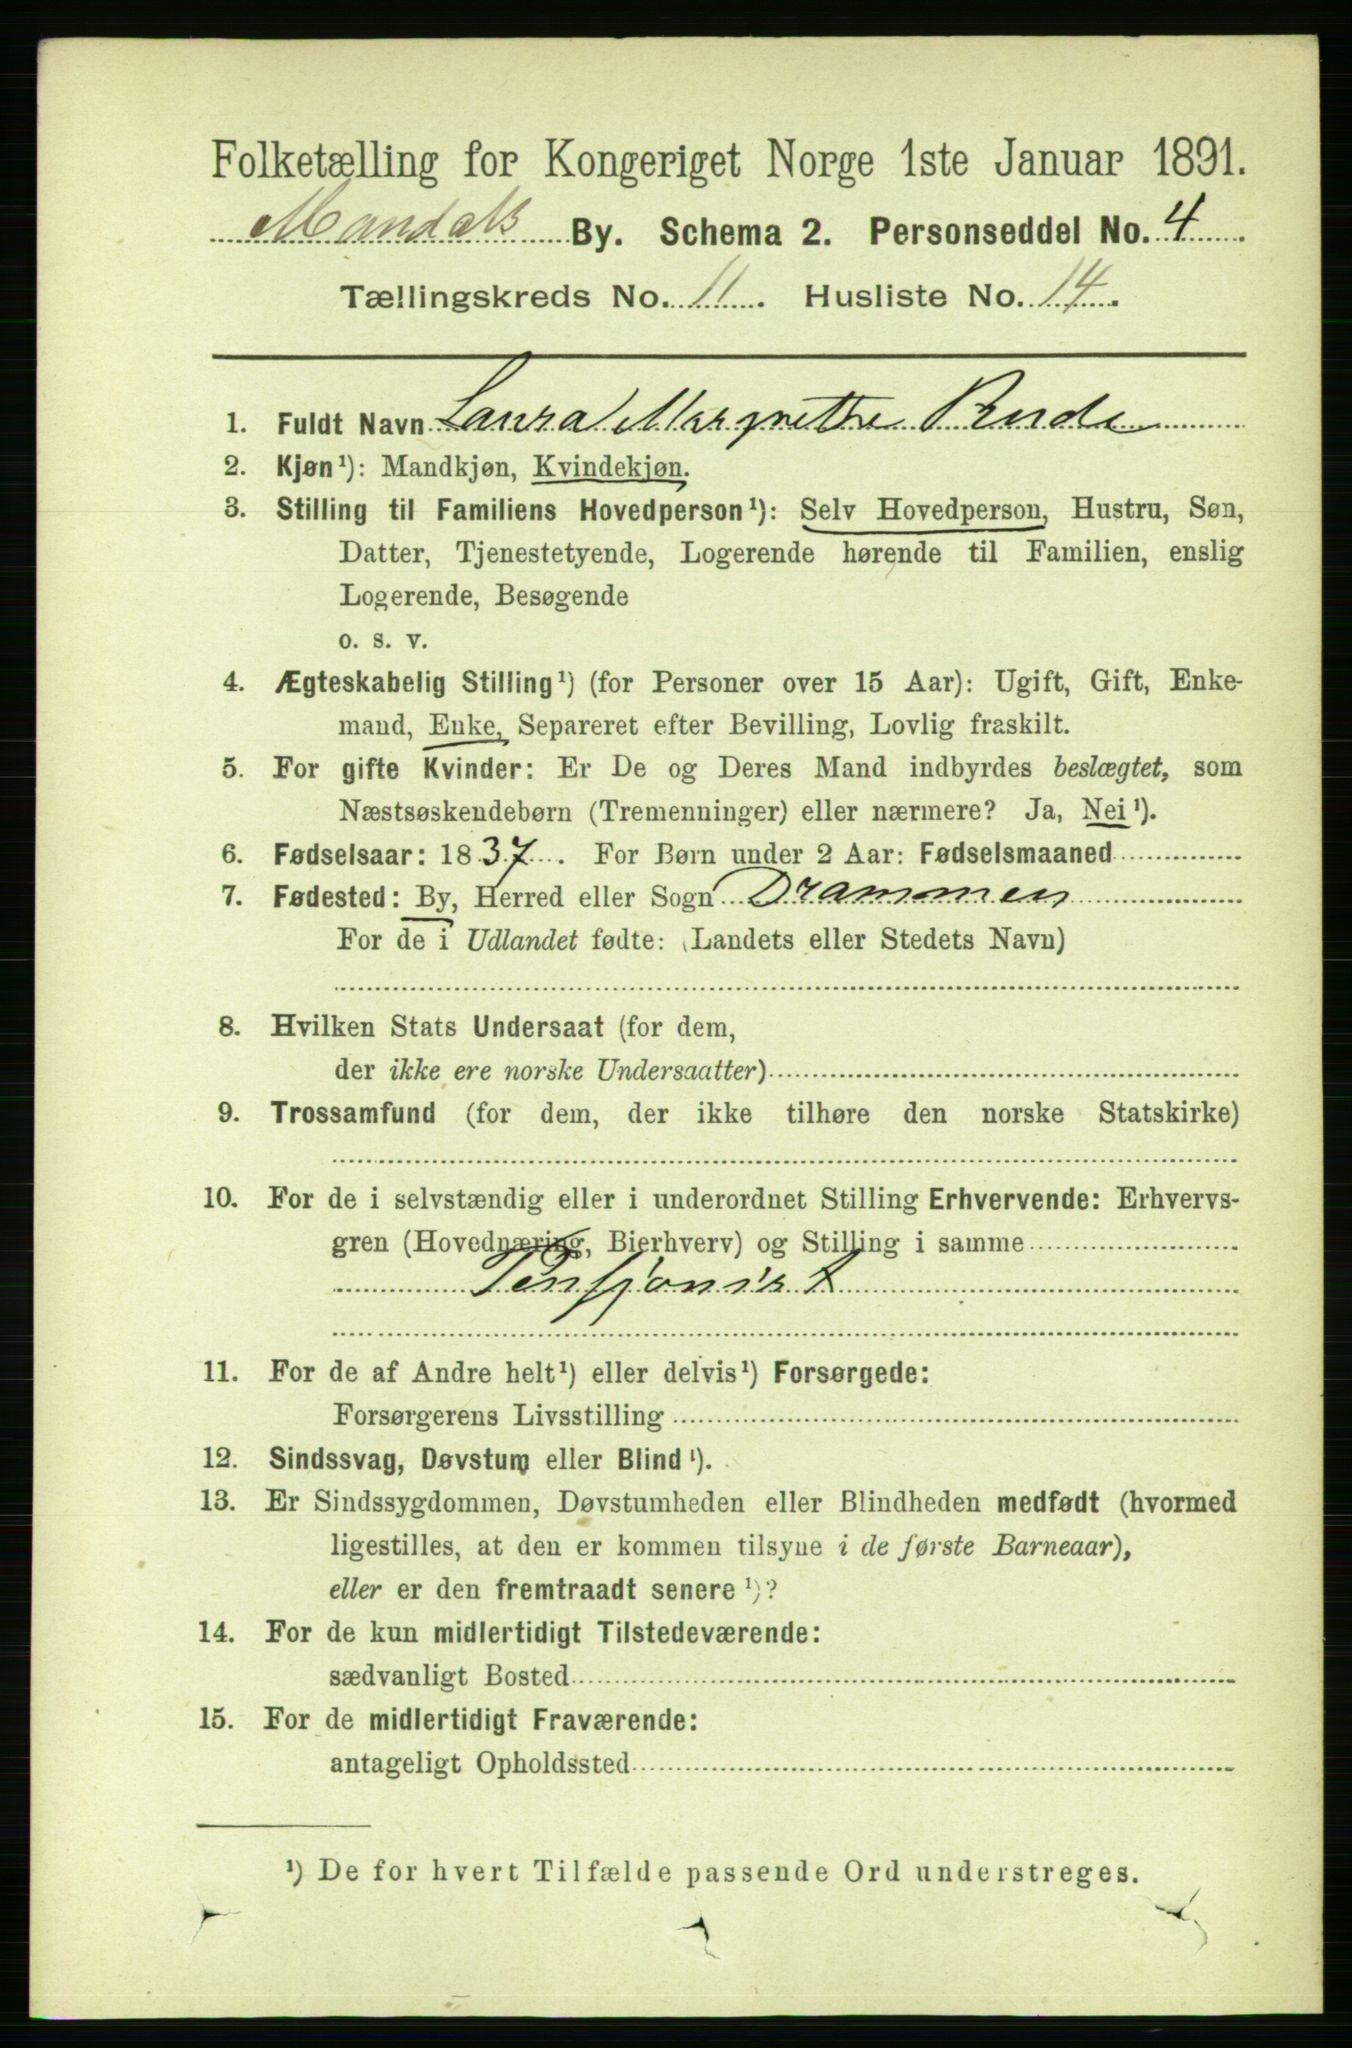 Folketælling for Kongeriget Norge 1ste Januar 1891.
Mandals By. Schema 2. Personseddel No. 4
Tællingskreds No. 11. Husliste No. 14.
1. Fuldt Navn Laura Margrethe
2. Kjøn¹): Mandkjøn, Kvindekjøn.
3. Stilling til Familiens Hovedperson¹): Selv Hovedperson, Hustru, Søn,
Datter, Tjenestetyende, Logerende hørende til Familien, enslig
Logerende, Besøgende
o. s. v.
4. Ægteskabelig Stilling¹) (for Personer over 15 Aar): Ugift, Gift, Enke-
mand, Enke, Separeret efter Bevilling, Lovlig fraskilt.
5. For gifte Kvinder: Er De og Deres Mand indbyrdes beslægtet, som
Næstsøskendebørn (Tremenninger) eller nærmere? Ja, Nei¹).
6. Fødselsaar: 1837. For Børn under 2 Aar: Fødselsmaaned
7. Fødested: By, Herred eller Sogn Drammen
For de i Udlandet fødte: (Landets eller Stedets Navn)
8. Hvilken Stats Undersaat (for dem,
der ikke ere norske Undersaatter)
9. Trossamfund (for dem, der ikke tilhøre den norske Statskirke)
10. For de i selvstændig eller i underordnet Stilling Erhvervende: Erhvervs-
gren (Hovednæring, Bierhverv) og Stilling i samme
Pensjonist
11. For de af Andre helt¹) eller delvis¹) Forsørgede:
Forsørgerens Livsstilling
12. Sindssvag, Døvstum eller Blind¹).
13. Er Sindssygdommen, Døvstumheden eller Blindheden medfødt (hvormed
ligestilles, at den er kommen tilsyne i de første Barneaar),
eller er den fremtraadt senere¹)?
14. For de kun midlertidigt Tilstedeværende:
sædvanligt Bosted
15. For de midlertidigt Fraværende:
antageligt Opholdssted
¹) De for hvert Tilfælde passende Ord understreges.